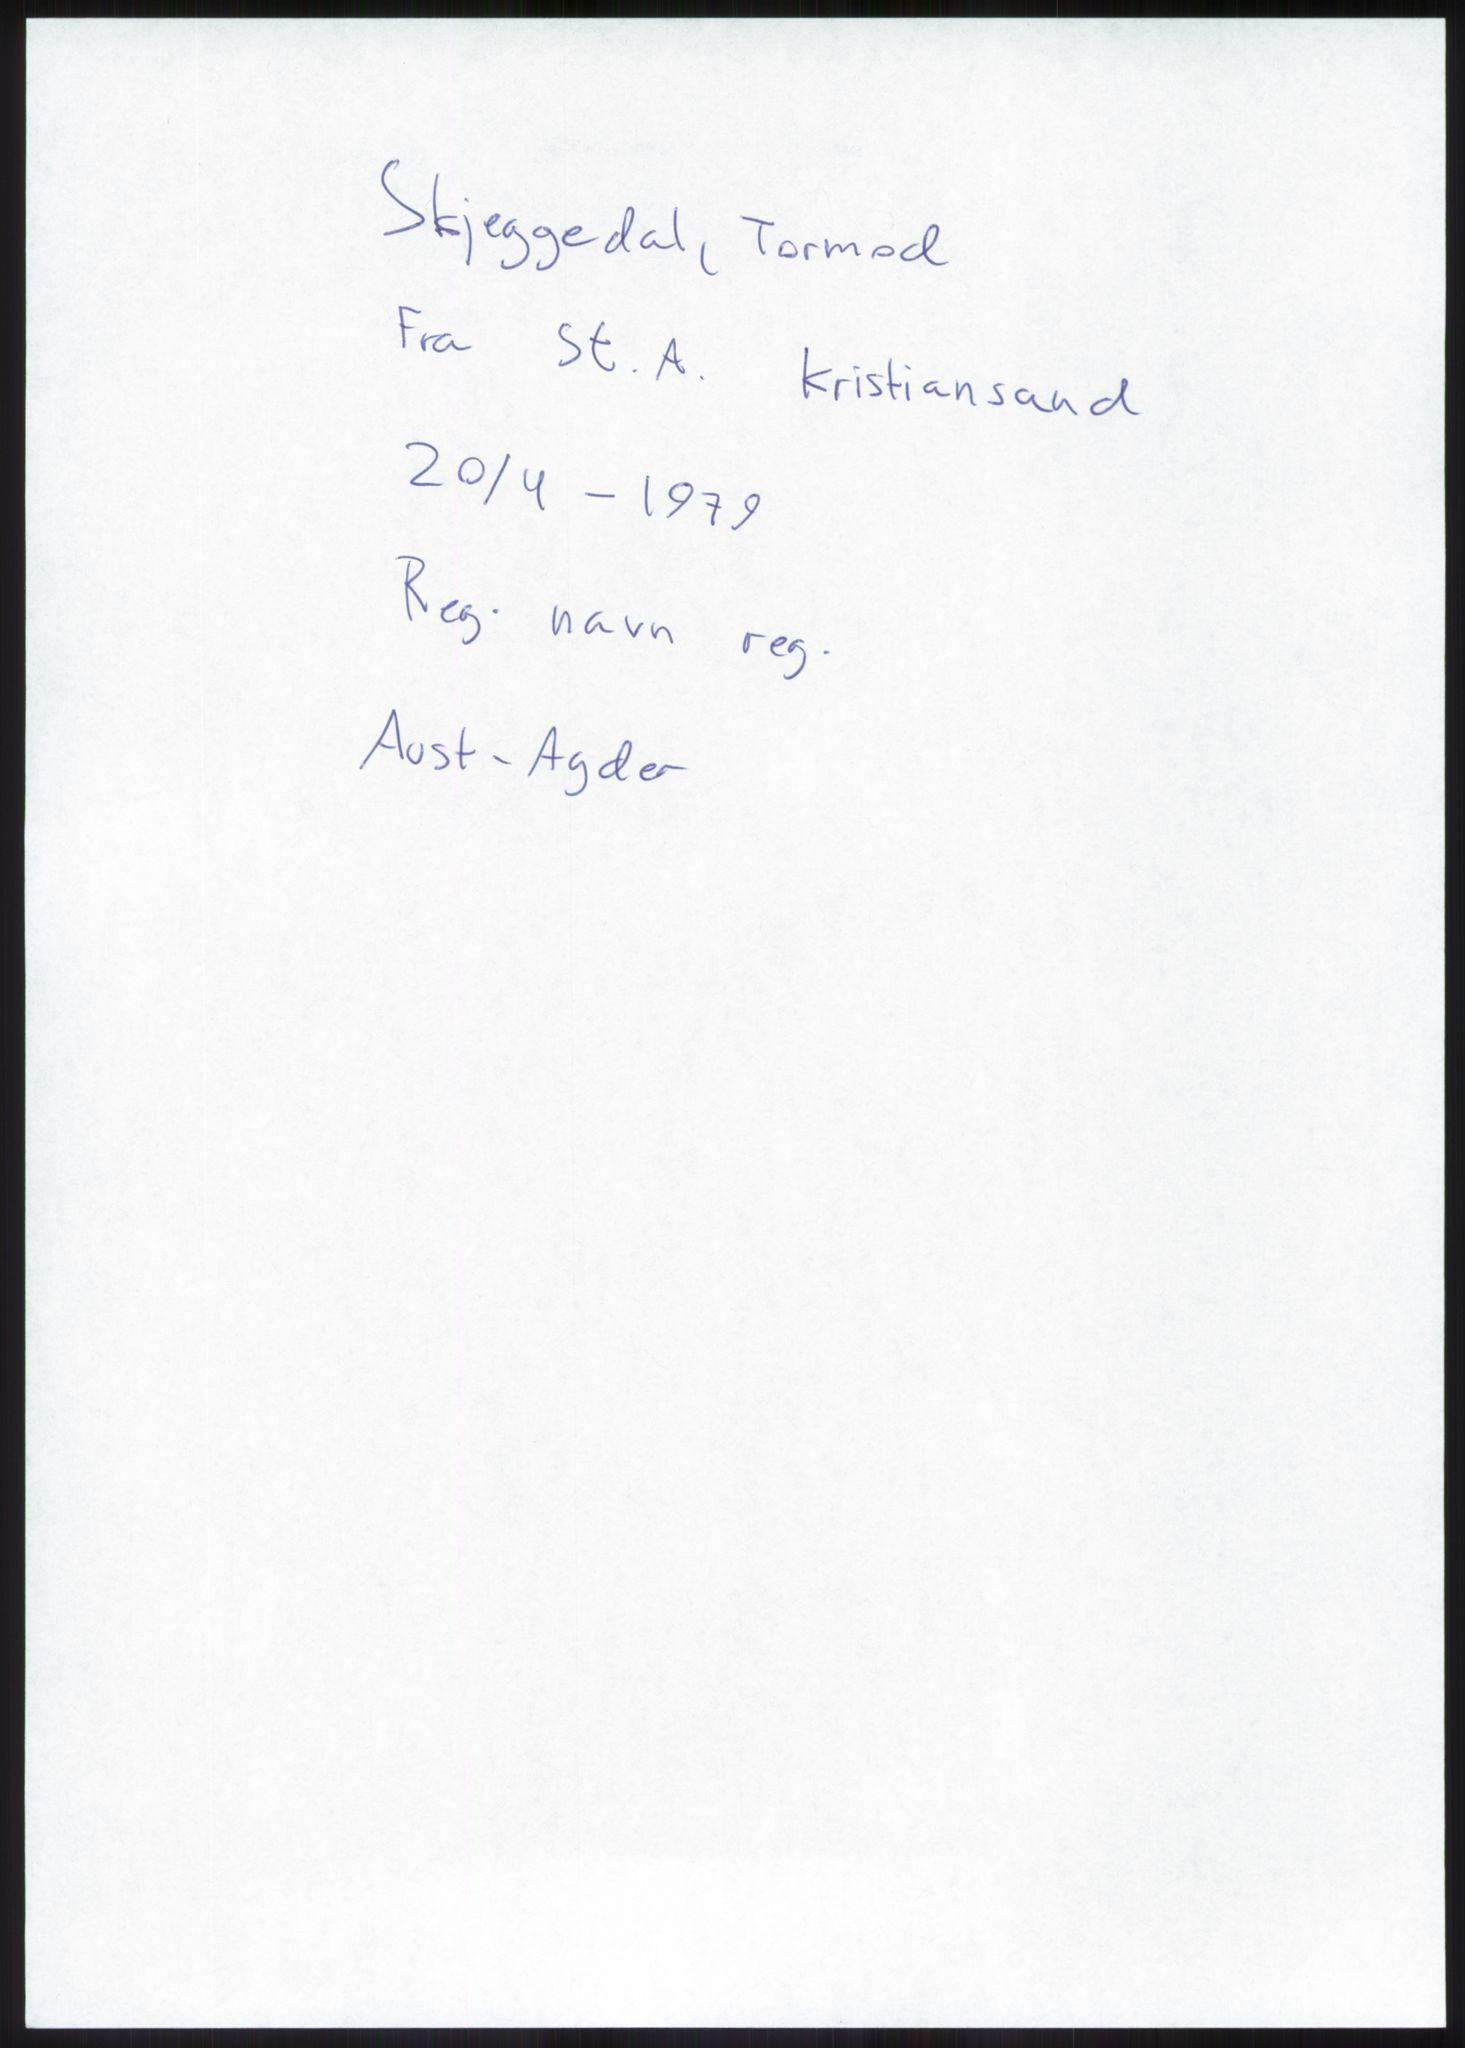 Skjeggedal, Tormod
Fra St. A. Kristiansand
20/4 - 1979
Reg. navn reg.
Aust-Agder